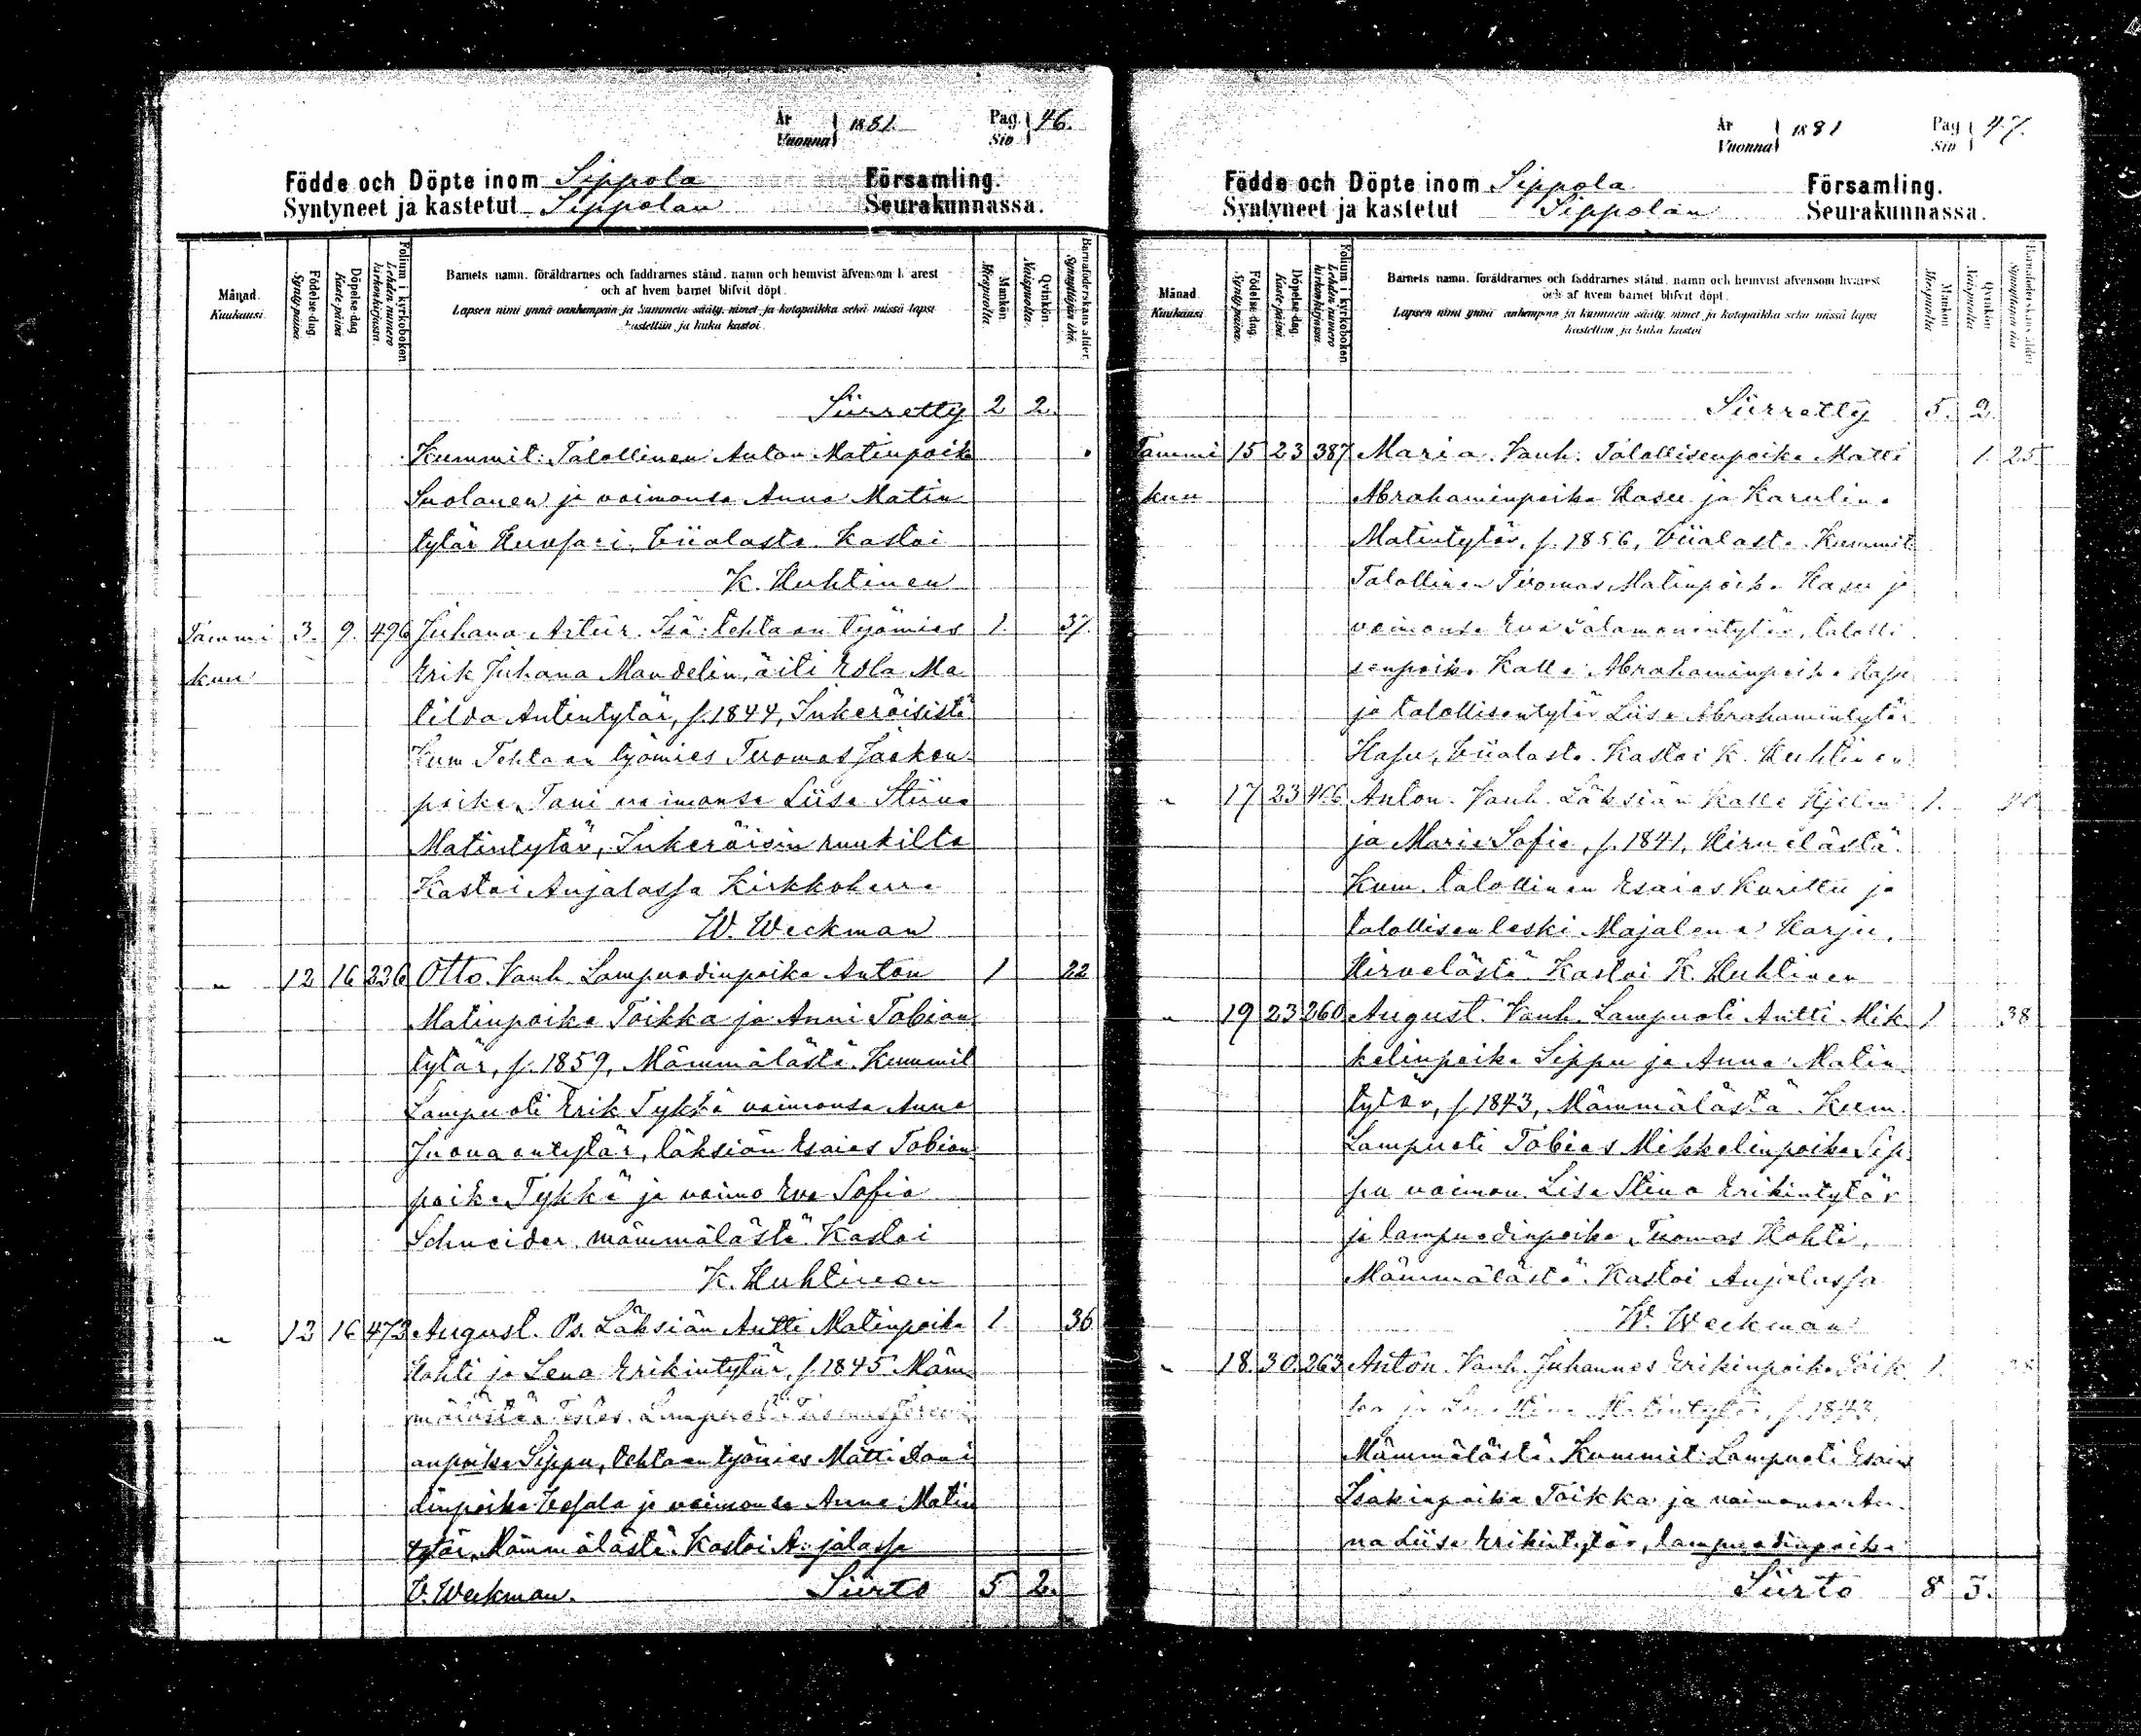 År Vuonna 1881. Pag. Siv 46.
Födde och Döpte inom Sippola Församling.
Syntyneet ja kastetut Sippolan Seurakunnassa.
Månad. Kuukausi
Födelse-dag. Synty-päivä
Döpelse-dag Kaste-päivä
Folium i kyrkoboken. Lehden numero kirkonkirjassa.
Barnets namn, föräldrarnes och faddrarnes stånd, namn och hemvist äfvensom hvarest
och af hvem barnet blifvit döpt.
Lapsen nimi ynnä vanhempain ja kummein sääty, nimet ja kotopaikka sekä missä lapsi
kastettiin ja kuka kastoi.
Mankön. Miespuolia
Qvinkön. Naispuolia.
Barnaföderskans ålder. Synnyttäjän ikä.
Siirretty 2 2.
Kummit: Talollinen Anton Matinpoika
Suolanen ja vaimonsa Anna Matin
tytär Hervfari, Viialasta. Kastoi
K. Huhtinen
Tammi 3. 9. 496 Juhana Artur. Isä: tehtaan työmies 1. 37.
kuu Erik Juhana Mandelin, äiti Edla Ma
tilda Antintytär, s. 1844, Inkeröisistä
Kum Tehtaan työmies Tuomas Jaakon
poika Tani vaimonsa Liisa Stiina
Matintytär, Inkeröisin ruukilta
Kastoi Anjalassa Kirkkoherra
W. Weckman
" 12 16 236 Otto. Vanh. Lampuodinpoika Anton 1 22
Matinpoika Toikka ja Anni Tobian
tytär, s. 1859, Mämmälästä. Kummit
Lampuoti Erik Tykkä vaimonsa Anna
Juhanantytär, läksiän Esaias Tobian
poika Tykkä ja vaimo Eva Sofia
Schneider mämmälästä. Kastoi
K. Huhtinen
" 12 16 473 August. Vs. Läksiän Antti Matinpoika 1 36
Kohti ja Lena Erikintytär, s. 1845 Mäm
mälästä. Lampuoti Tuomas
anpoika Sippu, tehtaan työmies Matti Dani
elinpoika ja vaimonsa Anna Matin
tytär, Mämmälästä. Kastoi Anjalassa
V. Weckman. Siirto 5 2.
År Vuonna 1881 Pag Siv 47.
Födde och Döpte inom Sippola Församling.
Syntyneet ja kastetut Sippolan Seurakunnassa.
Månad. Kuukausi
Födelse-dag. Synty-päivä.
Döpelse-dag. Kaste-päivä
Folium i kyrkoboken. Lehden numero kirkonkirjassa.
Barnets namn, föräldrarnes och faddrarnes stånd, namn och hemvist äfvensom hvarest
och af hvem barnet blifvit döpt.
Lapsen nimi ynnä vanhempain ja kummein sääty, nimet ja kotopaikka sekä missä lapsi
kastettiin ja kuka kastoi
Mankön Miespuolia
Qvinkön Naispuolia
Barnaföderskans ålder Synnyttäjän ikä
Siirretty 5. 2.
Tammi 15 23 387 Maria. Vanh. Talollisenpoika Matti 1. 25.
kuu Abrahaminpoika Hasu ja Karulina
Matintytär, s. 1856, Viialasta. Kummit
Talollinen Tuomas Matinpoika Hasu ja
vaimonsa Eva Salamonintytär, talolli
senpoika Kalle Abrahaminpoika Hasu
ja talollisentytär Liisa Abrahamintytär
Hasu, Viialasta. Kastoi K. Huhtinen
" 17 23 Anton. Vanh. Läksiän Kalle Hjelm 1. 40
ja Maria Sofia, s. 1841, Hirvelästä.
Kum. talollinen Esaias Kurittu ja
talollisen leski Majalena Harju,
Hirvelästä. Kastoi K. Huhtinen
" 19 23 260 August. Vanh. Lampuoti Antti Mik 1 38
kelinpoika Sippu ja Anna Matin
tytär, s. 1843, Mämmälästä. Kum.
Lampuoti Tobias Mikkelinpoika Sip
pu vaimon. Lisa Stina Erikintytär
ja lampuodinpoika Tuomas Kohti,
Mämmälästä. Kastoi Anjalassa
W. Weckman
" 18. 30. 263 Anton. Vanh. Juhannes Erikinpoika Toik 1. 38
ka ja Matintytär, s. 1843,
Mämmälästä. Kummit: Lampuoti Esaias
Isakinpoika Toikka ja vaimonsa An
na Liisa Erikintytär, lampuodinpoika
Siirto 8 3.